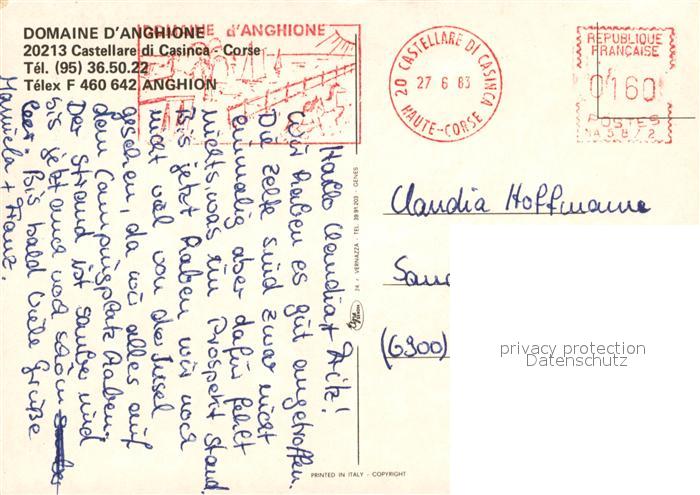 DOMAINE D'ANGHIONE
20213 Castellare di Casinca - Corse
Tél. (95) 36.50.22
Télex F 460 642 ANGHION
DOMAINE d'ANGHIONE
20 CASTELLARE DI CASINCA
27 6 83
HAUTE-CORSE
REPUBLIQUE
FRANÇAISE
0160
POSTES
Hallo Claudia + Fritz!
Wir haben es gut angetroffen.
Die Zelte sind zwar nicht
einmalig aber dafür fehlt
nichts, was im Prospekt stand.
Bis jetzt haben wir noch
nicht viel von der Insel
gesehen, da wir alles auf
dem Campingplatz haben.
Der Strand ist sauber und
bis jetzt auch noch schön
leer. Bis bald viele Grüße
Manuela + Franz.
24 / VERNAZZA - TEL. 39.91.203 - GENES
Claudia Hoffmann
(6300)
privacy protection
Datenschutz
PRINTED IN ITALY - COPYRIGHT